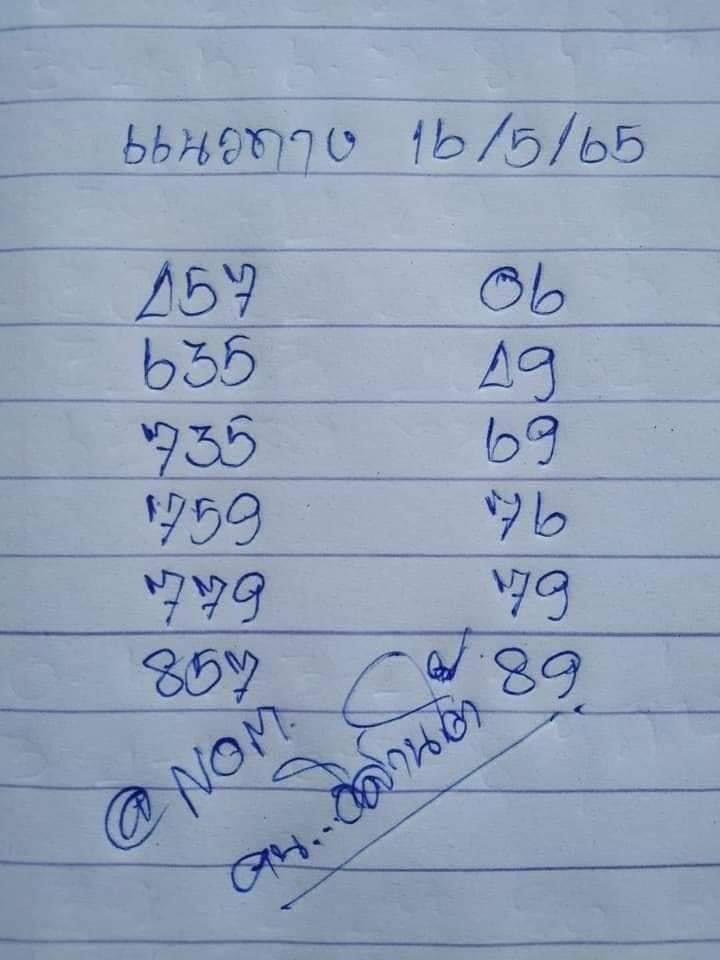 แนวทาง 16/5/65
157 06
635 19
735 69
759 76
779 79
857 89
@NOM.
คน..อิสานใต้